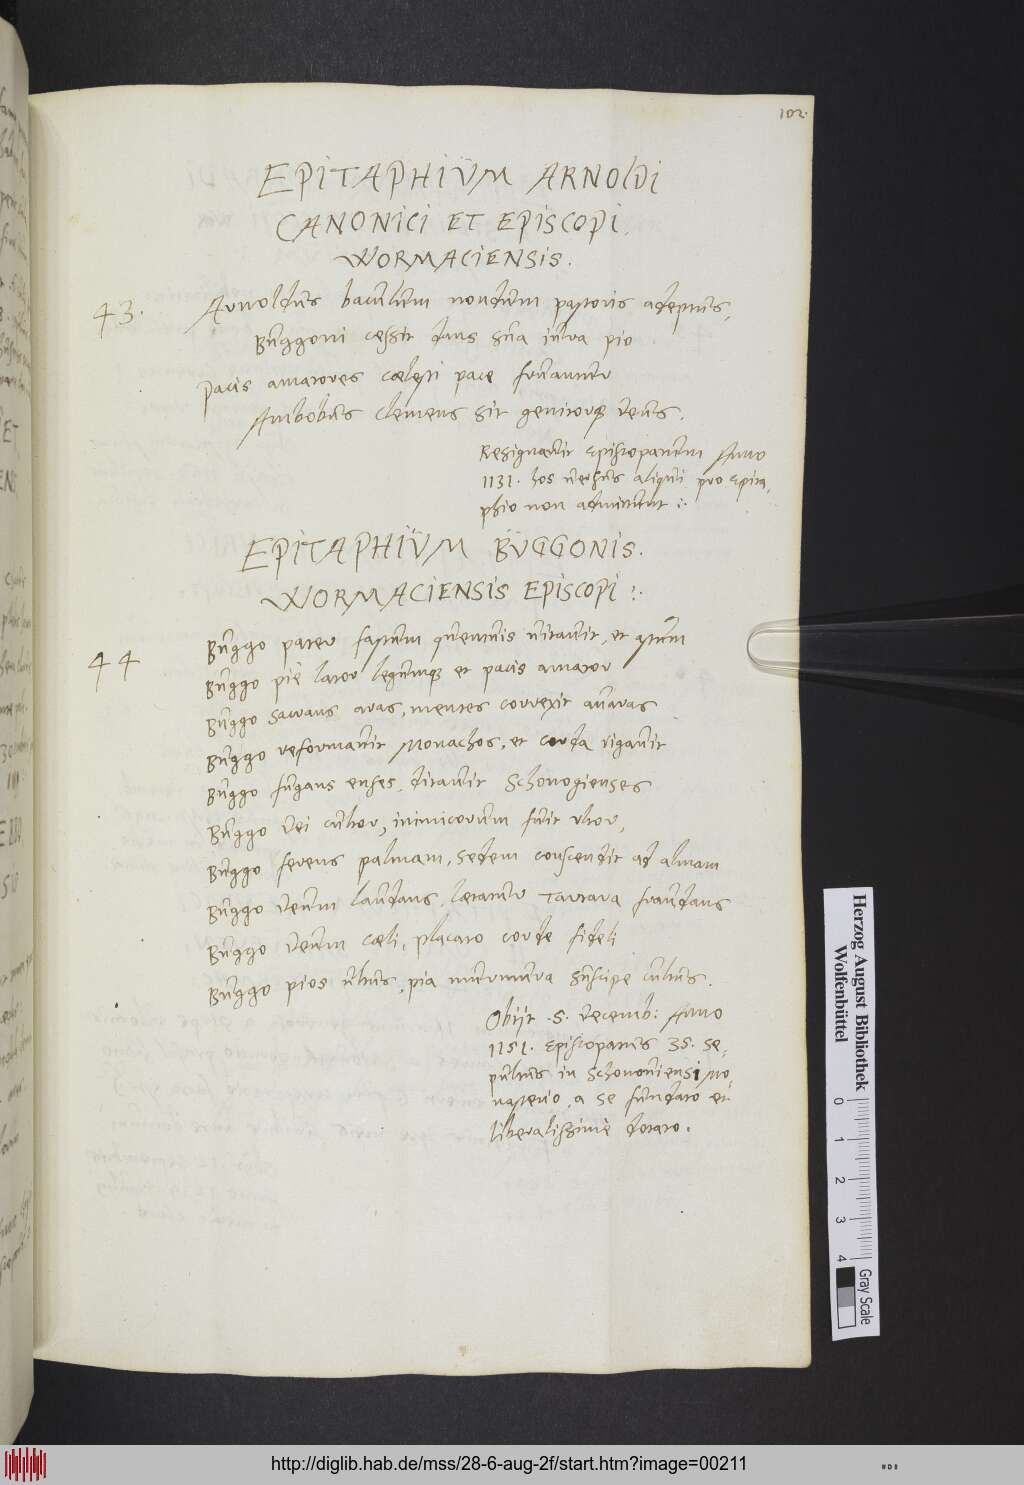 102.
EPITAPHIŬM ARNOLDI
CANONICI ET EPISCOPI
WORMACIENSIS.
43. Arnoldus baculum nondum pastoris adeptus,
Buggoni cessit dans sua iura pio
Pacis amatores cælesti pace fruantur
Ambobus clemens sit genitorq deus.
Resignavit Episcopatum Anno
1131. hos versus aliqui pro Epita,
phio non admittunt :·
EPITAPHIŬM BŬGGONIS.
WORMACIENSIS EPISCOPI :·
44 Buggo pater fastum quemuis uitauit, et
Buggo piè lator legumq et pacis amator
Buggo sacrans aras, mentes correxit auaras
Buggo reformauit Monachos, et corda rigauit
Buggo fugans enses, ditauit Schonogienses
Buggo dei cultor, inimicorum fuit ultor,
Buggo ferens palmam, sedem conscendit ad almam
Buggo deum laudans, lætatur Tartara fraudans
Buggo deum cæli, placato corde fideli
Buggo pios uultus, pia murmura suscipe cultus.
Obijt .5. decemb: Anno
1151. Episcopatus 35. se,
pultus in Schononiensi Mo,
nasterio, a se fundato et
liberalissimè dotato.
Herzog August Bibliothek
Wolfenbüttel
0 1 2 3 4
Gray Scale
http://diglib.hab.de/mss/28-6-aug-2f/start.htm?image=00211